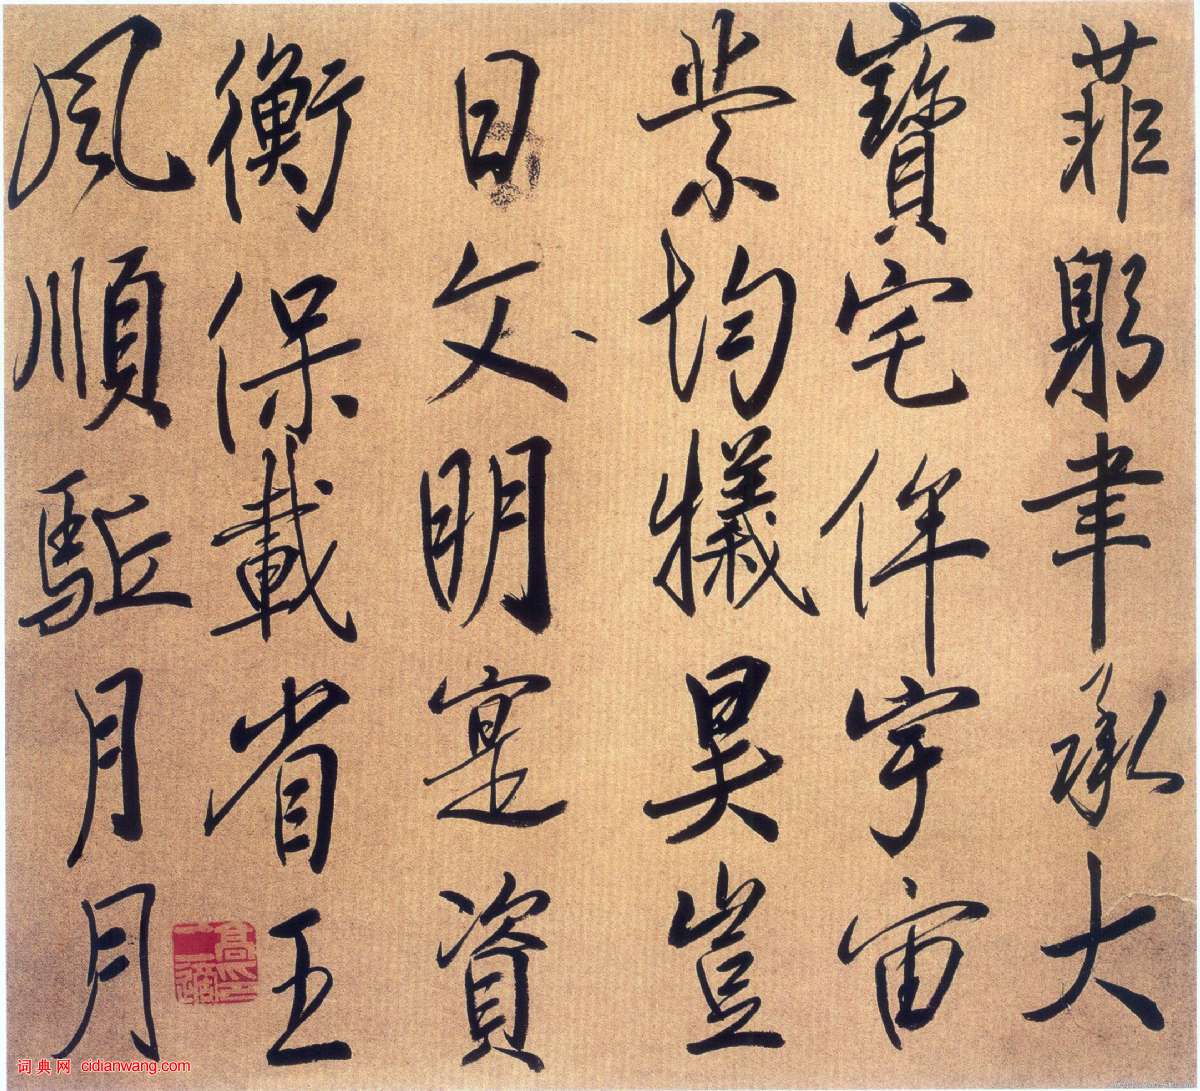 菲躬聿承大
寶宅侔宇宙
業均犧昊豈
曰文明寔資
衡保載省王
風順駈月月
词典网 cidianwang.com